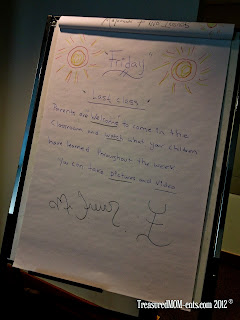 Friday
Last class!
Parents are welcome to come in the
classroom and watch what you children
have learned throughout the week
You can take pictures and video
TreasuredMOM-ents.com 2012©